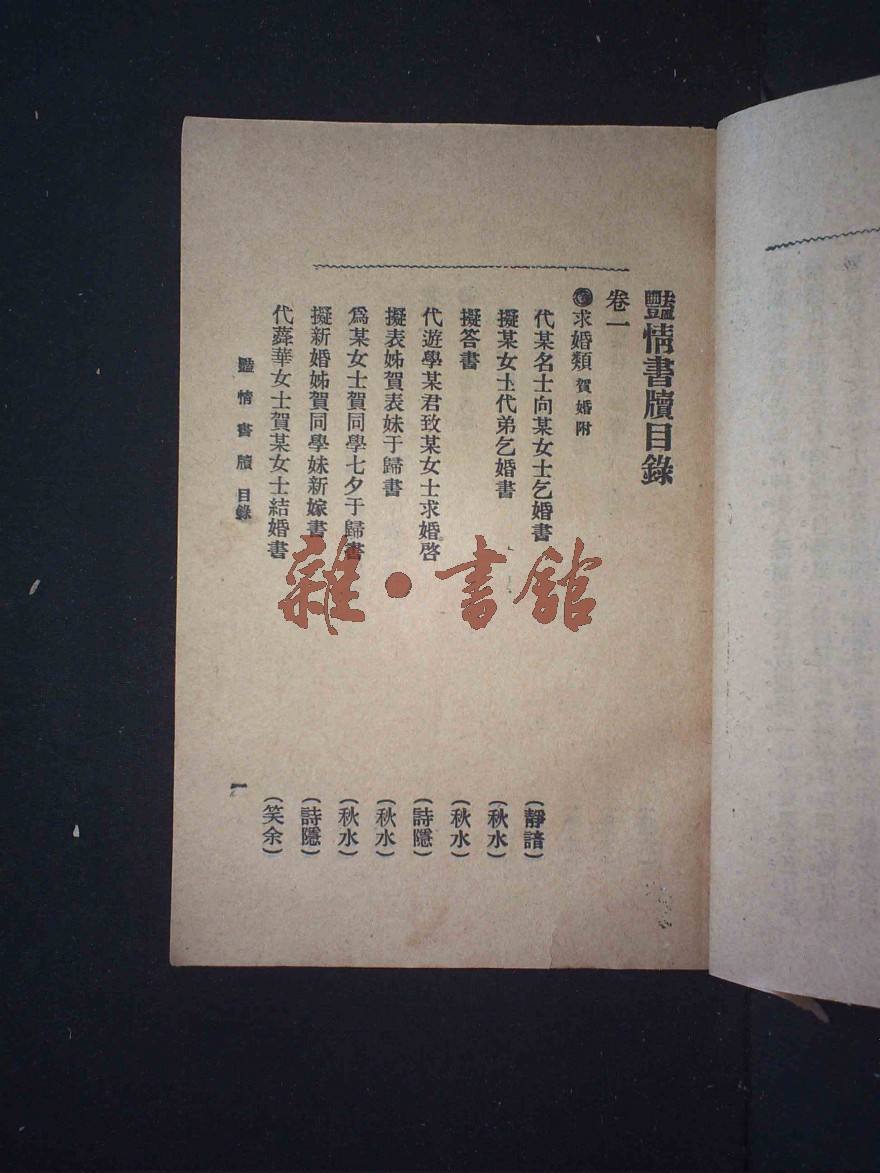 豔情書牘目錄
卷一
求婚類 賀婚附
代某名士向某女士乞婚書 (靜諳)
擬某女士代弟乞婚書 (秋水)
擬答書 (秋水)
代遊學某君致某女士求婚啓 (詩隱)
擬表姊賀表妹于歸書 (秋水)
爲某女士賀同學七夕于歸書 (秋水)
擬新婚姊賀同學妹新嫁書 (詩隱)
代蕣華女士賀某女士結婚書 (笑余)
豔情書牘 目錄
一
雜·書館